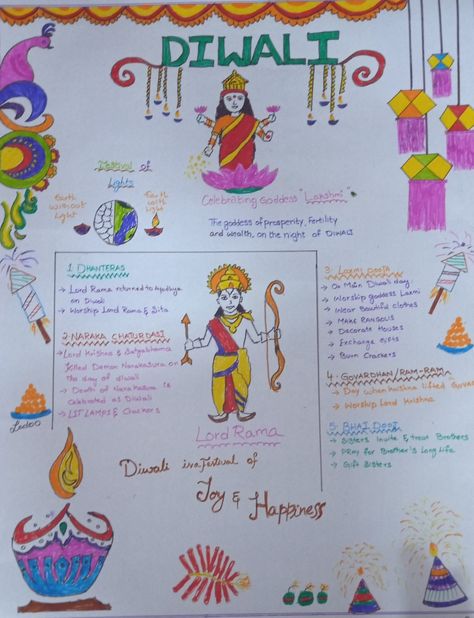 DIWALI
Festival of
Lights
Earth
without
Light
Earth
with
Light
Celebrating Goddess "Lakshmi"
The goddess of prosperity, Fertility
and wealth, on the night of DIWALI
1. DHANTERAS
→ Lord Rama returned to Ayodhya
on Diwali
→ Worship Lord Rama & Sita
2. NARAKA CHATURDASI
→ Lord Krishna & Satyabhama
Killed Demon Narakasura on
the day of diwali
→ Death of Narakasura is
Celebrated as Diwali
→ LIT LAMPS & Crackers
Lord Rama
3. LAXMI POOJA
→ On Main Diwali day
→ Worship goddess Laxmi
→ Wear Beautiful clothes
→ MAKE RANGOLIS
→ Decorate Houses
→ Exchange Gifts
→ Burn Crackers
4. GOVARDHAN/RAM-RAM
→ Day when Krishna lifted
→ Worship Lord Krishna
5. BHAI DOOJ
→ Sisters Invite & treat Brothers
→ PRay for Brother's Long Life
→ Gift Sisters
Ladoo
Diwali is a Festival of
Joy & Happiness